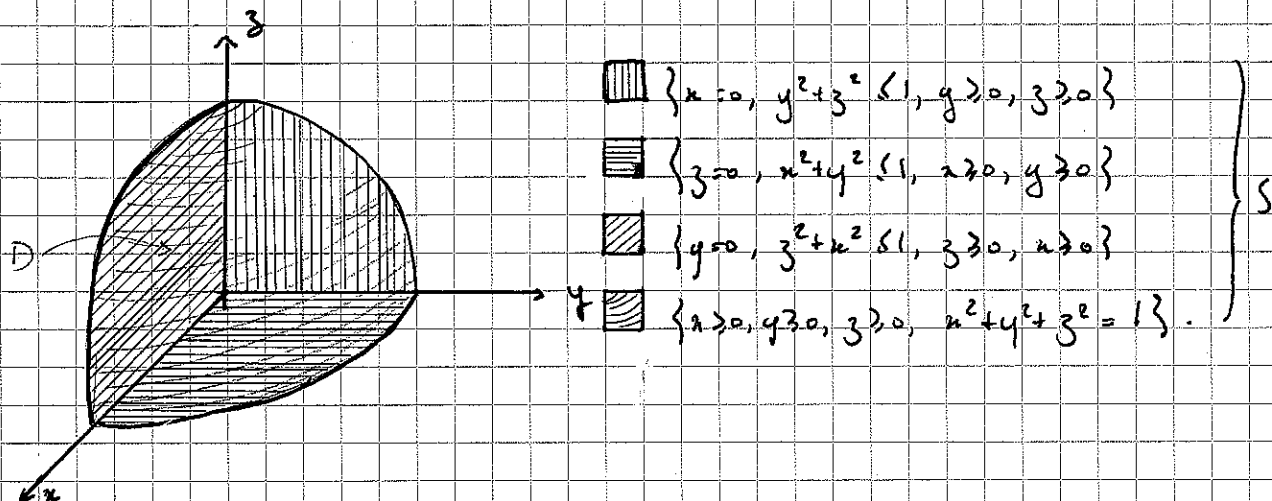 z
{x=0, y²+z² ≤1, y≥0, z≥0}
{z=0, x²+y² ≤1, x≥0, y≥0}
S
D
{y=0, z²+x² ≤1, z≥0, x≥0}
y
{x≥0, y≥0, z≥0, x²+y²+z² = 1}.
x